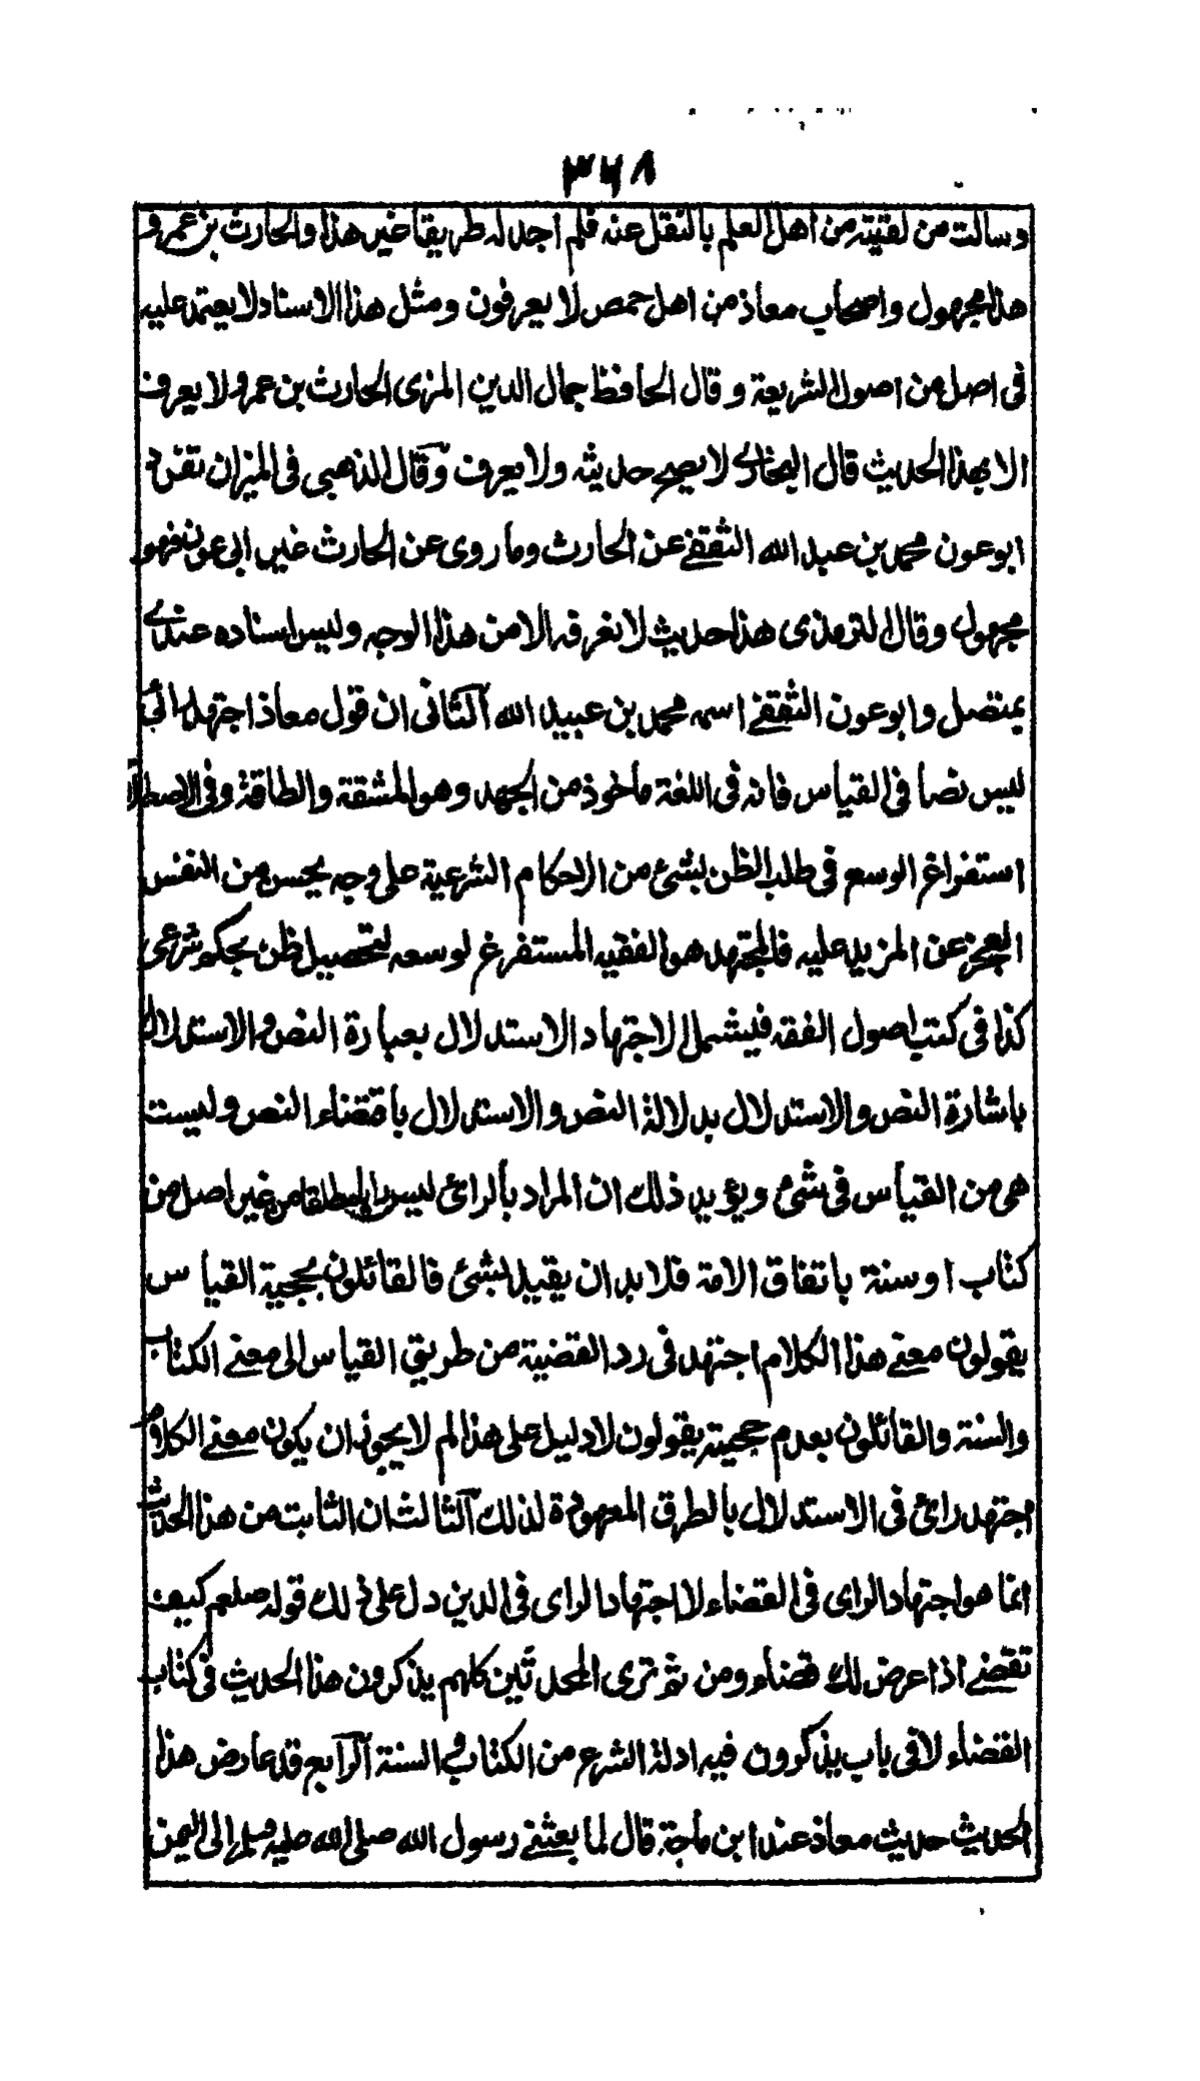 ٣٦٨
وسالت من لقيته من اهل العلم بالنقل عنه فلم اجد له طريقا غير هذا والحارث بن عمرو
هذا مجهول واصحاب معاذ من اهل حمص لا يعرفون ومثل هذا الاسناد لا يعتمد عليه
فى اصل من اصول الشريعة وقال الحافظ جمال الدين المزى الحارث بن عمرو لا يعرف
الا بهذا الحديث قال البخارى لا يصح حديثه ولا يعرف وقال الذهبى فى الميزان تفرد
ابو عون محمد بن عبد الله الثقفے عن الحارث وما روى عن الحارث غير ابى عون فهو
مجهول وقال الترمذى هذا حديث لا نعرفه الا من هذا الوجه وليس اسناده عندى
بمتصل وابو عون الثقفے اسمه محمد بن عبيد الله الثانى ان قول معاذ اجتهد رائى
ليس نصا فى القياس فانه فى اللغة ماخوذ من الجهد وهو المشقة والطاقة وفى الاصطلاح
استفراغ الوسع فى طلب الظن بشئ من الاحكام الشرعية على وجه يحس من النفس
العجز عن المزيد عليه فالمجتهد هو الفقيه المستفرغ لوسعه لتحصيل ظن بحكم شرعى
كذا فى كتب اصول الفقه فيشمل الاجتهاد الاستدلال بعبارة النص والاستدلال
باشارة النص والاستدلال بدلالة النص والاستدلال باقتضاء النص وليست
هى من القياس فى شئ ويؤيد ذلك ان المراد بالرائ ليس رايا مطلقا من غير اصل من
كتاب او سنة باتفاق الامة فلا بد ان يقيد بشئ فالقائلون بحجية القياس
يقولون معنے هذا الكلام اجتهد فى رد القضية من طريق القياس الى معنے الكتاب
والسنة والقائلون بعدم حجيته يقولون لا دليل على هذا لم لا يجوز ان يكون معنے الكلام
اجتهد رائ فى الاستدلال بالطرق المعهودة لذلك الثالث ان الثابت من هذا الحديث
انما هو اجتهاد الراى فى القضاء لا اجتهاد الراى فى الدين دل على ذلك قوله صلعم كيف
تقضے اذا عرض لك قضاء ومن ثم ترى المحدثين كلهم يذكرون هذا الحديث فى كتاب
القضاء لا فى باب يذكرون فيه ادلة الشرع من الكتاب والسنة الرابع قد عارض هذا
الحديث حديث معاذ عند ابن ماجة قال لما بعثنے رسول الله صلى الله عليه وسلم الى اليمن